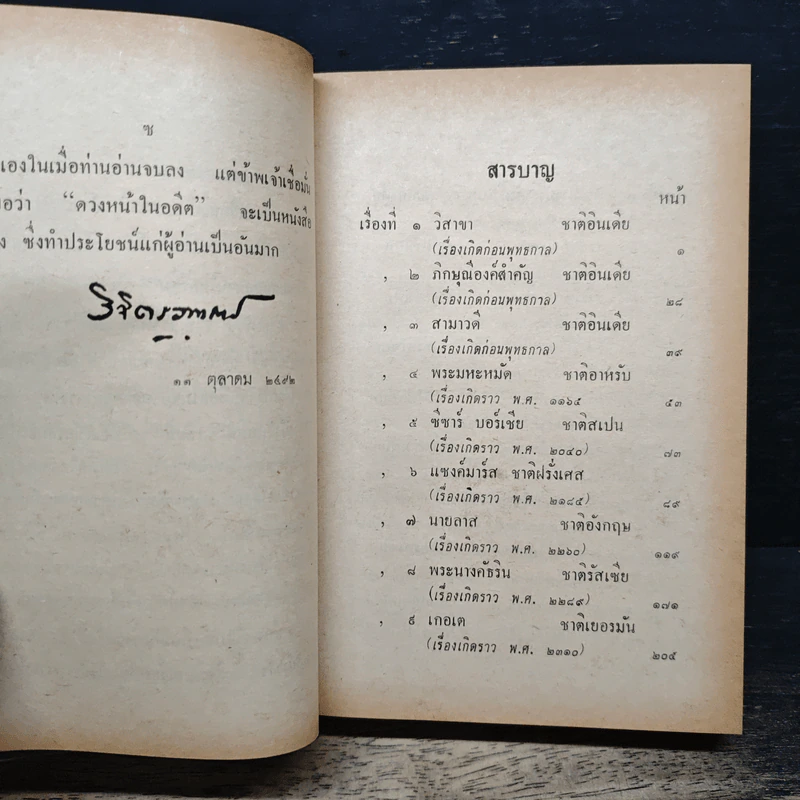 ซ
เองในเมื่อท่านอ่านจบลง แต่ข้าพเจ้าเชื่อมั่น
ว่า “ดวงหน้าในอดีต” จะเป็นหนังสือ
ซึ่งทำประโยชน์แก่ผู้อ่านเป็นอันมาก
วิจิตรวาทการ
๑๑ ตุลาคม ๒๔๙๒
สารบาญ
หน้า
เรื่องที่ ๑ วิสาขา ชาติอินเดีย
(เรื่องเกิดก่อนพุทธกาล) ๑
, ๒ ภิกษุณีองค์สำคัญ ชาติอินเดีย
(เรื่องเกิดก่อนพุทธกาล) ๒๘
, ๓ สามาวดี ชาติอินเดีย
(เรื่องเกิดก่อนพุทธกาล) ๓๙
, ๔ พระมหะหมัด ชาติอาหรับ
(เรื่องเกิดราว พ.ศ. ๑๑๖๕ ๕๓
, ๕ ซีซาร์ บอร์เชีย ชาติสเปน
(เรื่องเกิดราว พ.ศ. ๒๐๔๐) ๗๓
, ๖ แซงค์มาร์ส ชาติฝรั่งเศส
(เรื่องเกิดราว พ.ศ. ๒๑๘๕) ๘๙
, ๗ นายลาส ชาติอังกฤษ
(เรื่องเกิดราว พ.ศ. ๒๒๖๐) ๑๑๙
, ๘ พระนางคัธริน ชาติรัสเซีย
(เรื่องเกิดราว พ.ศ. ๒๒๘๙) ๑๗๑
, ๙ เกอเต ชาติเยอรมัน
(เรื่องเกิดราว พ.ศ. ๒๓๑๐) ๒๐๕